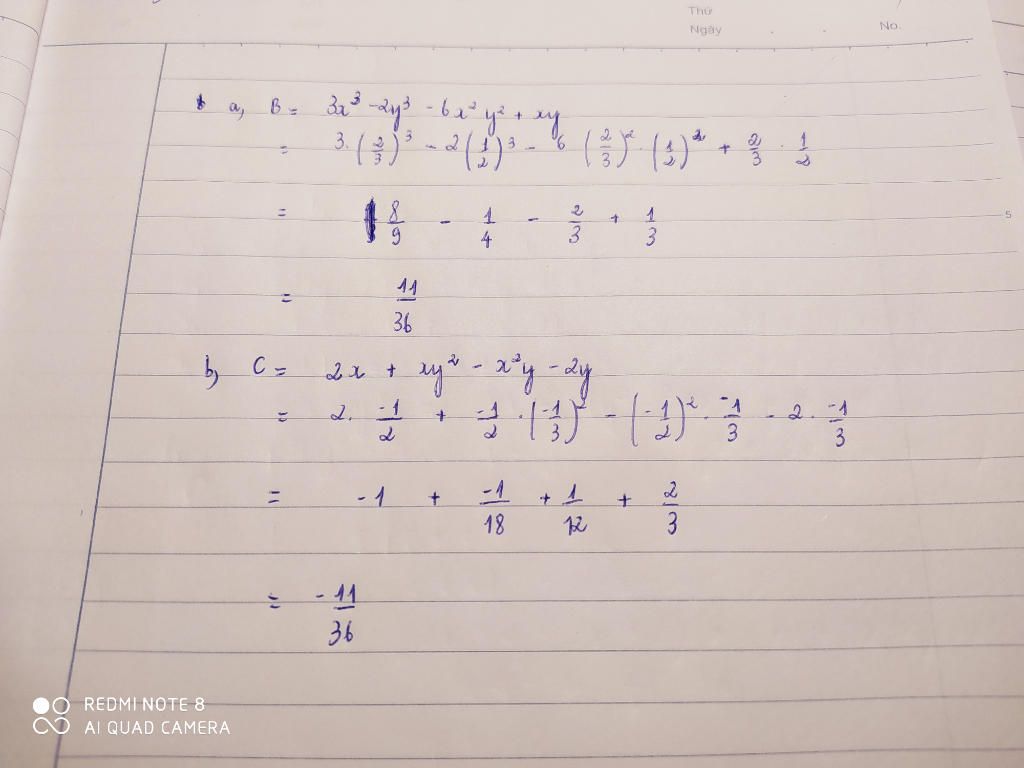 Thứ
Ngày . . No.
a, B = 3x³ - 2y³ - 6x²y² + xy
= 3.(2/3)³ - 2(1/2)³ - 6 (2/3)².(1/2)² + 2/3 . 1/2
= 8/9 - 1/4 - 2/3 + 1/3
5
= 11/36
b, C = 2x + xy² - x²y - 2y
= 2. -1/2 + -1/2 .(-1/3)² - (-1/2)² . -1/3 - 2. -1/3
= -1 + -1/18 + 1/12 + 2/3
= -11/36
REDMI NOTE 8
AI QUAD CAMERA